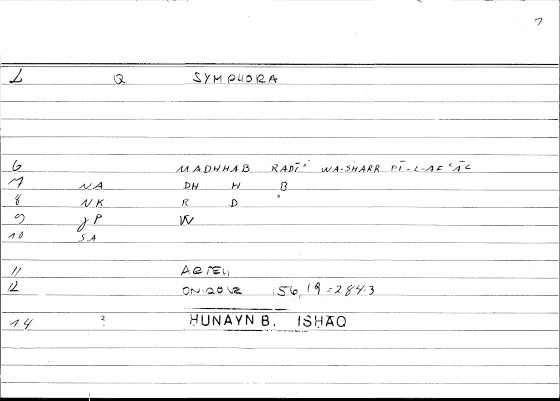 7
L Q SYMPHORA
6 MADHHAB RADĪ' WA-SHARR FĪ-L-AFʿĀL
7 NA DH H B
8 NK R D
9 JP W
10 SA
11 ARTEM
12 ONIROCR 156,19=284.3
14 ? HUNAYN B. ISHAQ